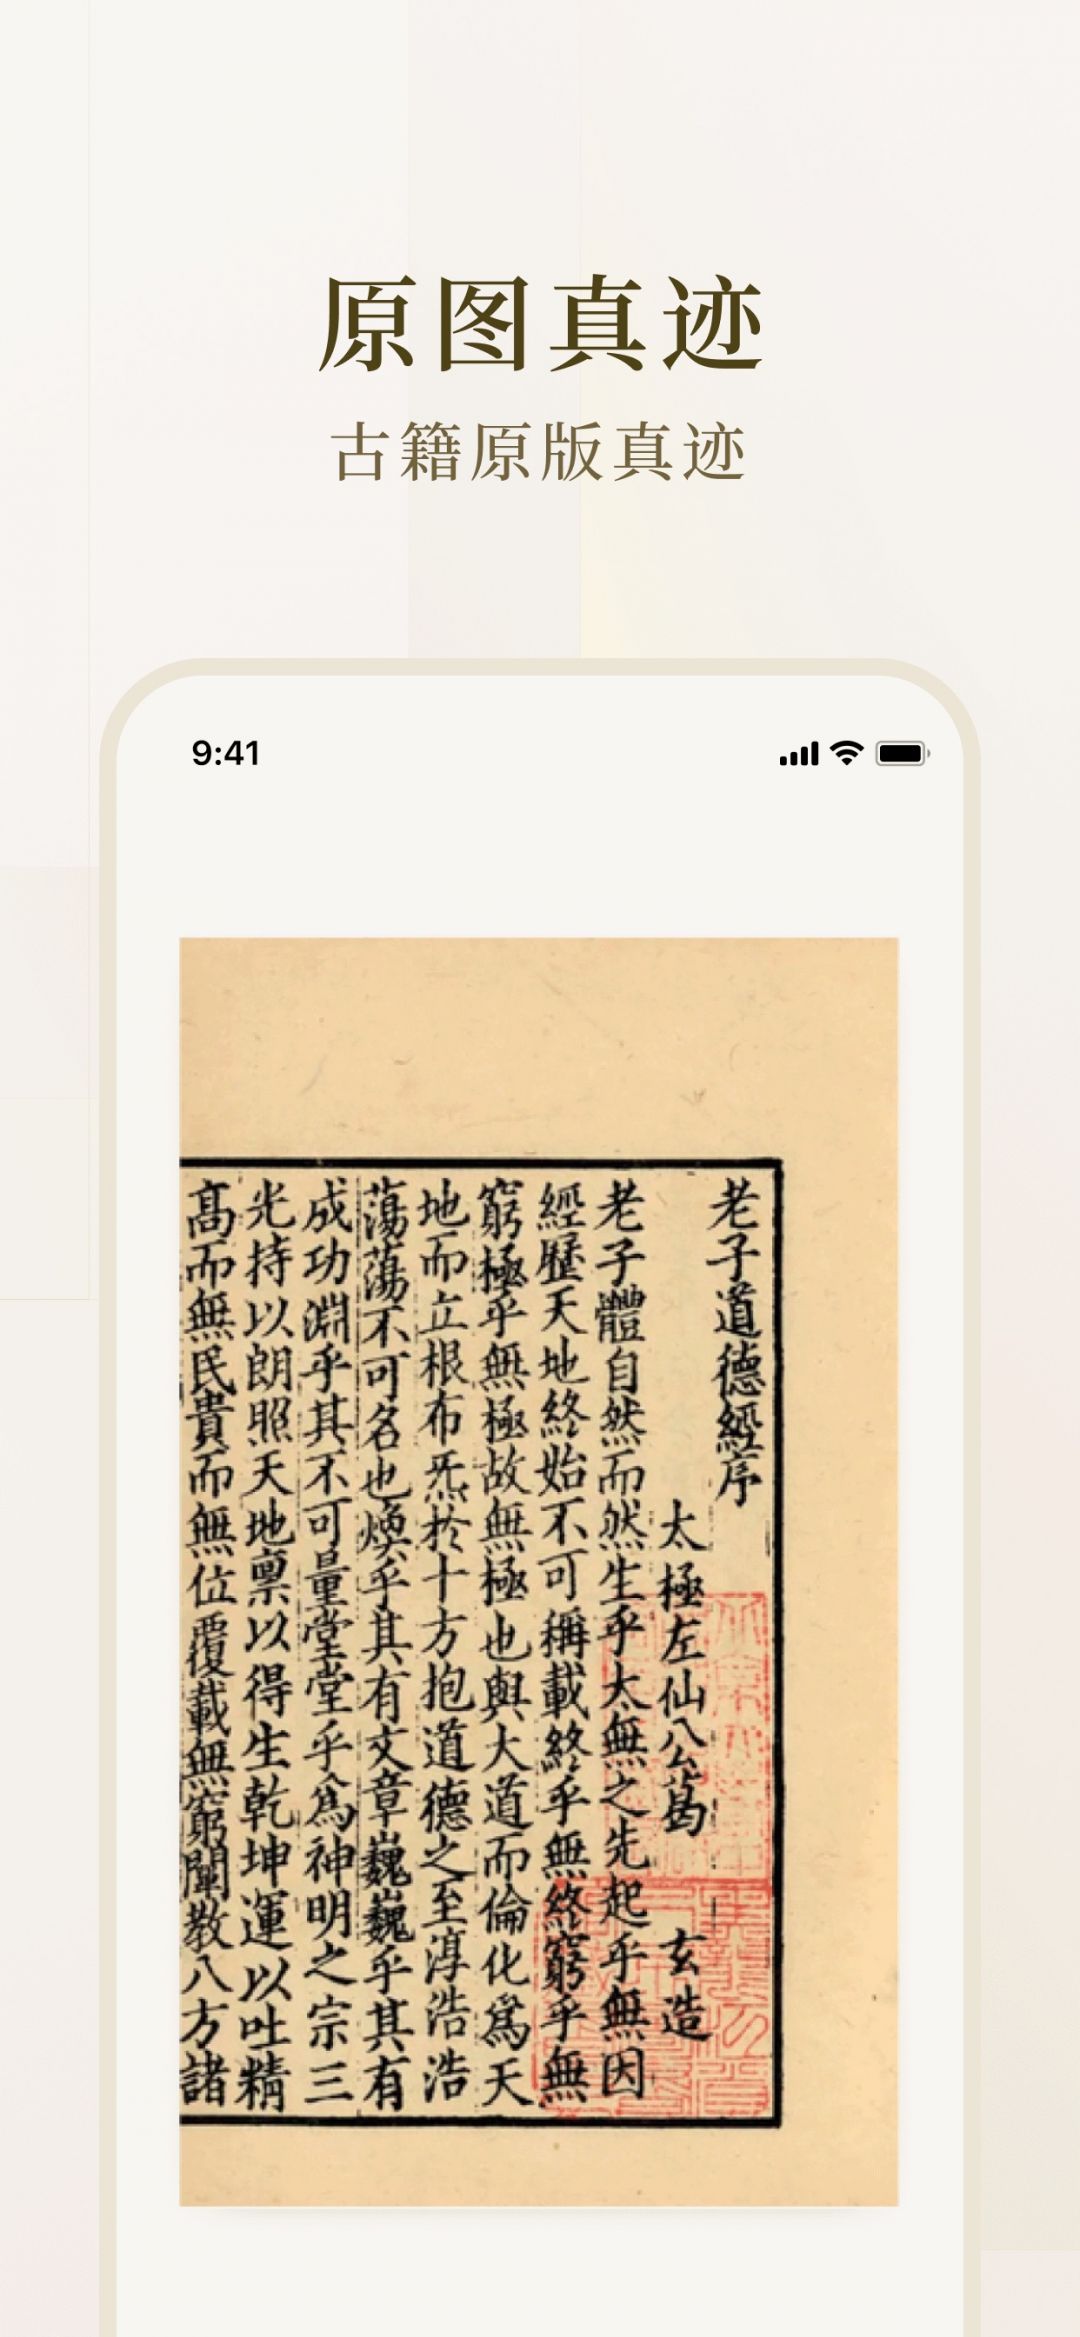 原图真迹
古籍原版真迹
9:41
老子道德經序
太極左仙公葛玄造
老子體自然而然生乎太無之先起乎無因
經歷天地終始不可稱載終乎無終窮乎無
窮極乎無極故無極也與大道而倫化爲天
地而立根布炁於十方抱道德之至淳浩浩
蕩蕩不可名也煥乎其有文章巍巍乎其有
成功淵乎其不可量堂堂乎爲神明之宗三
光持以朗照天地稟以得生乾坤運以吐精
高而無民貴而無位覆載無窮闡教八方諸